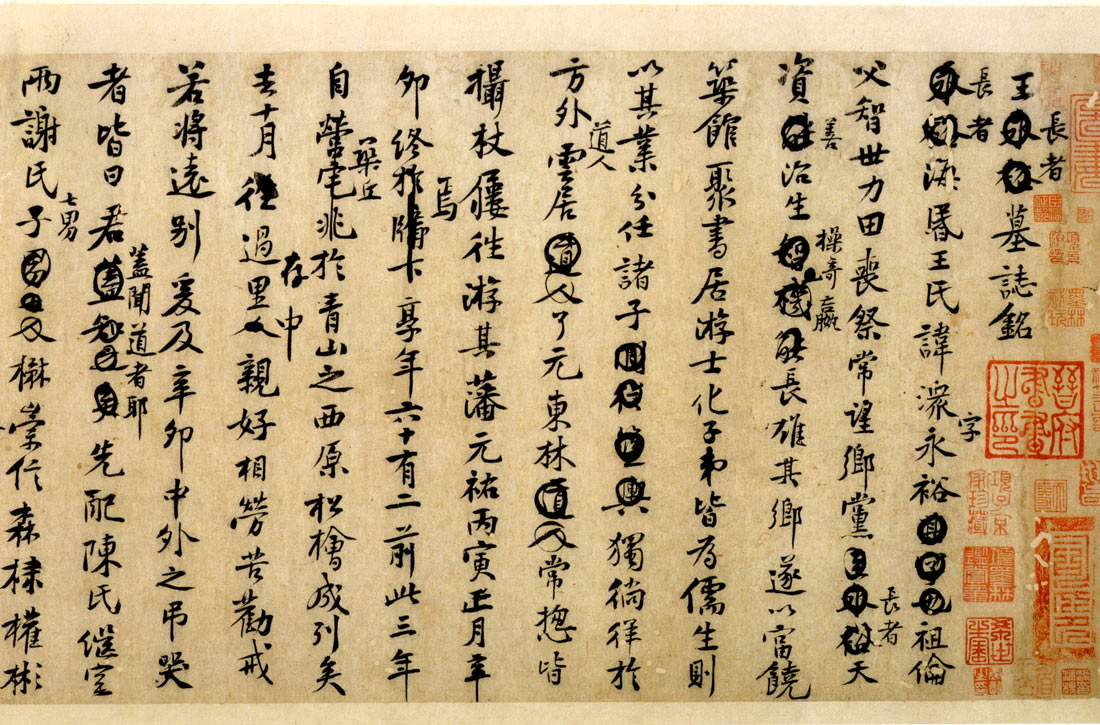 王長者墓誌銘
長者海昬王氏諱潀字永裕祖倫
父智世力田喪祭常望鄉黨長者天
資善治生操奇贏長雄其鄉遂以富饒
築館聚書居游士化子弟皆為儒生則
以其業分任諸子獨徜徉於
方外雲居道人了元東林常揔皆
攝杖屨往游其藩元祐丙寅正月辛
卯終於牖下享年六十有二前此三年
自營宅兆築丘於青山之西原松檜成列矣
去十月存過里中親好相勞苦勸戒
若將遠別爰及辛卯中外之弔哭
者皆曰君蓋聞道者耶先配陳氏繼室
兩謝氏子七男樕崇仁森棣權彬